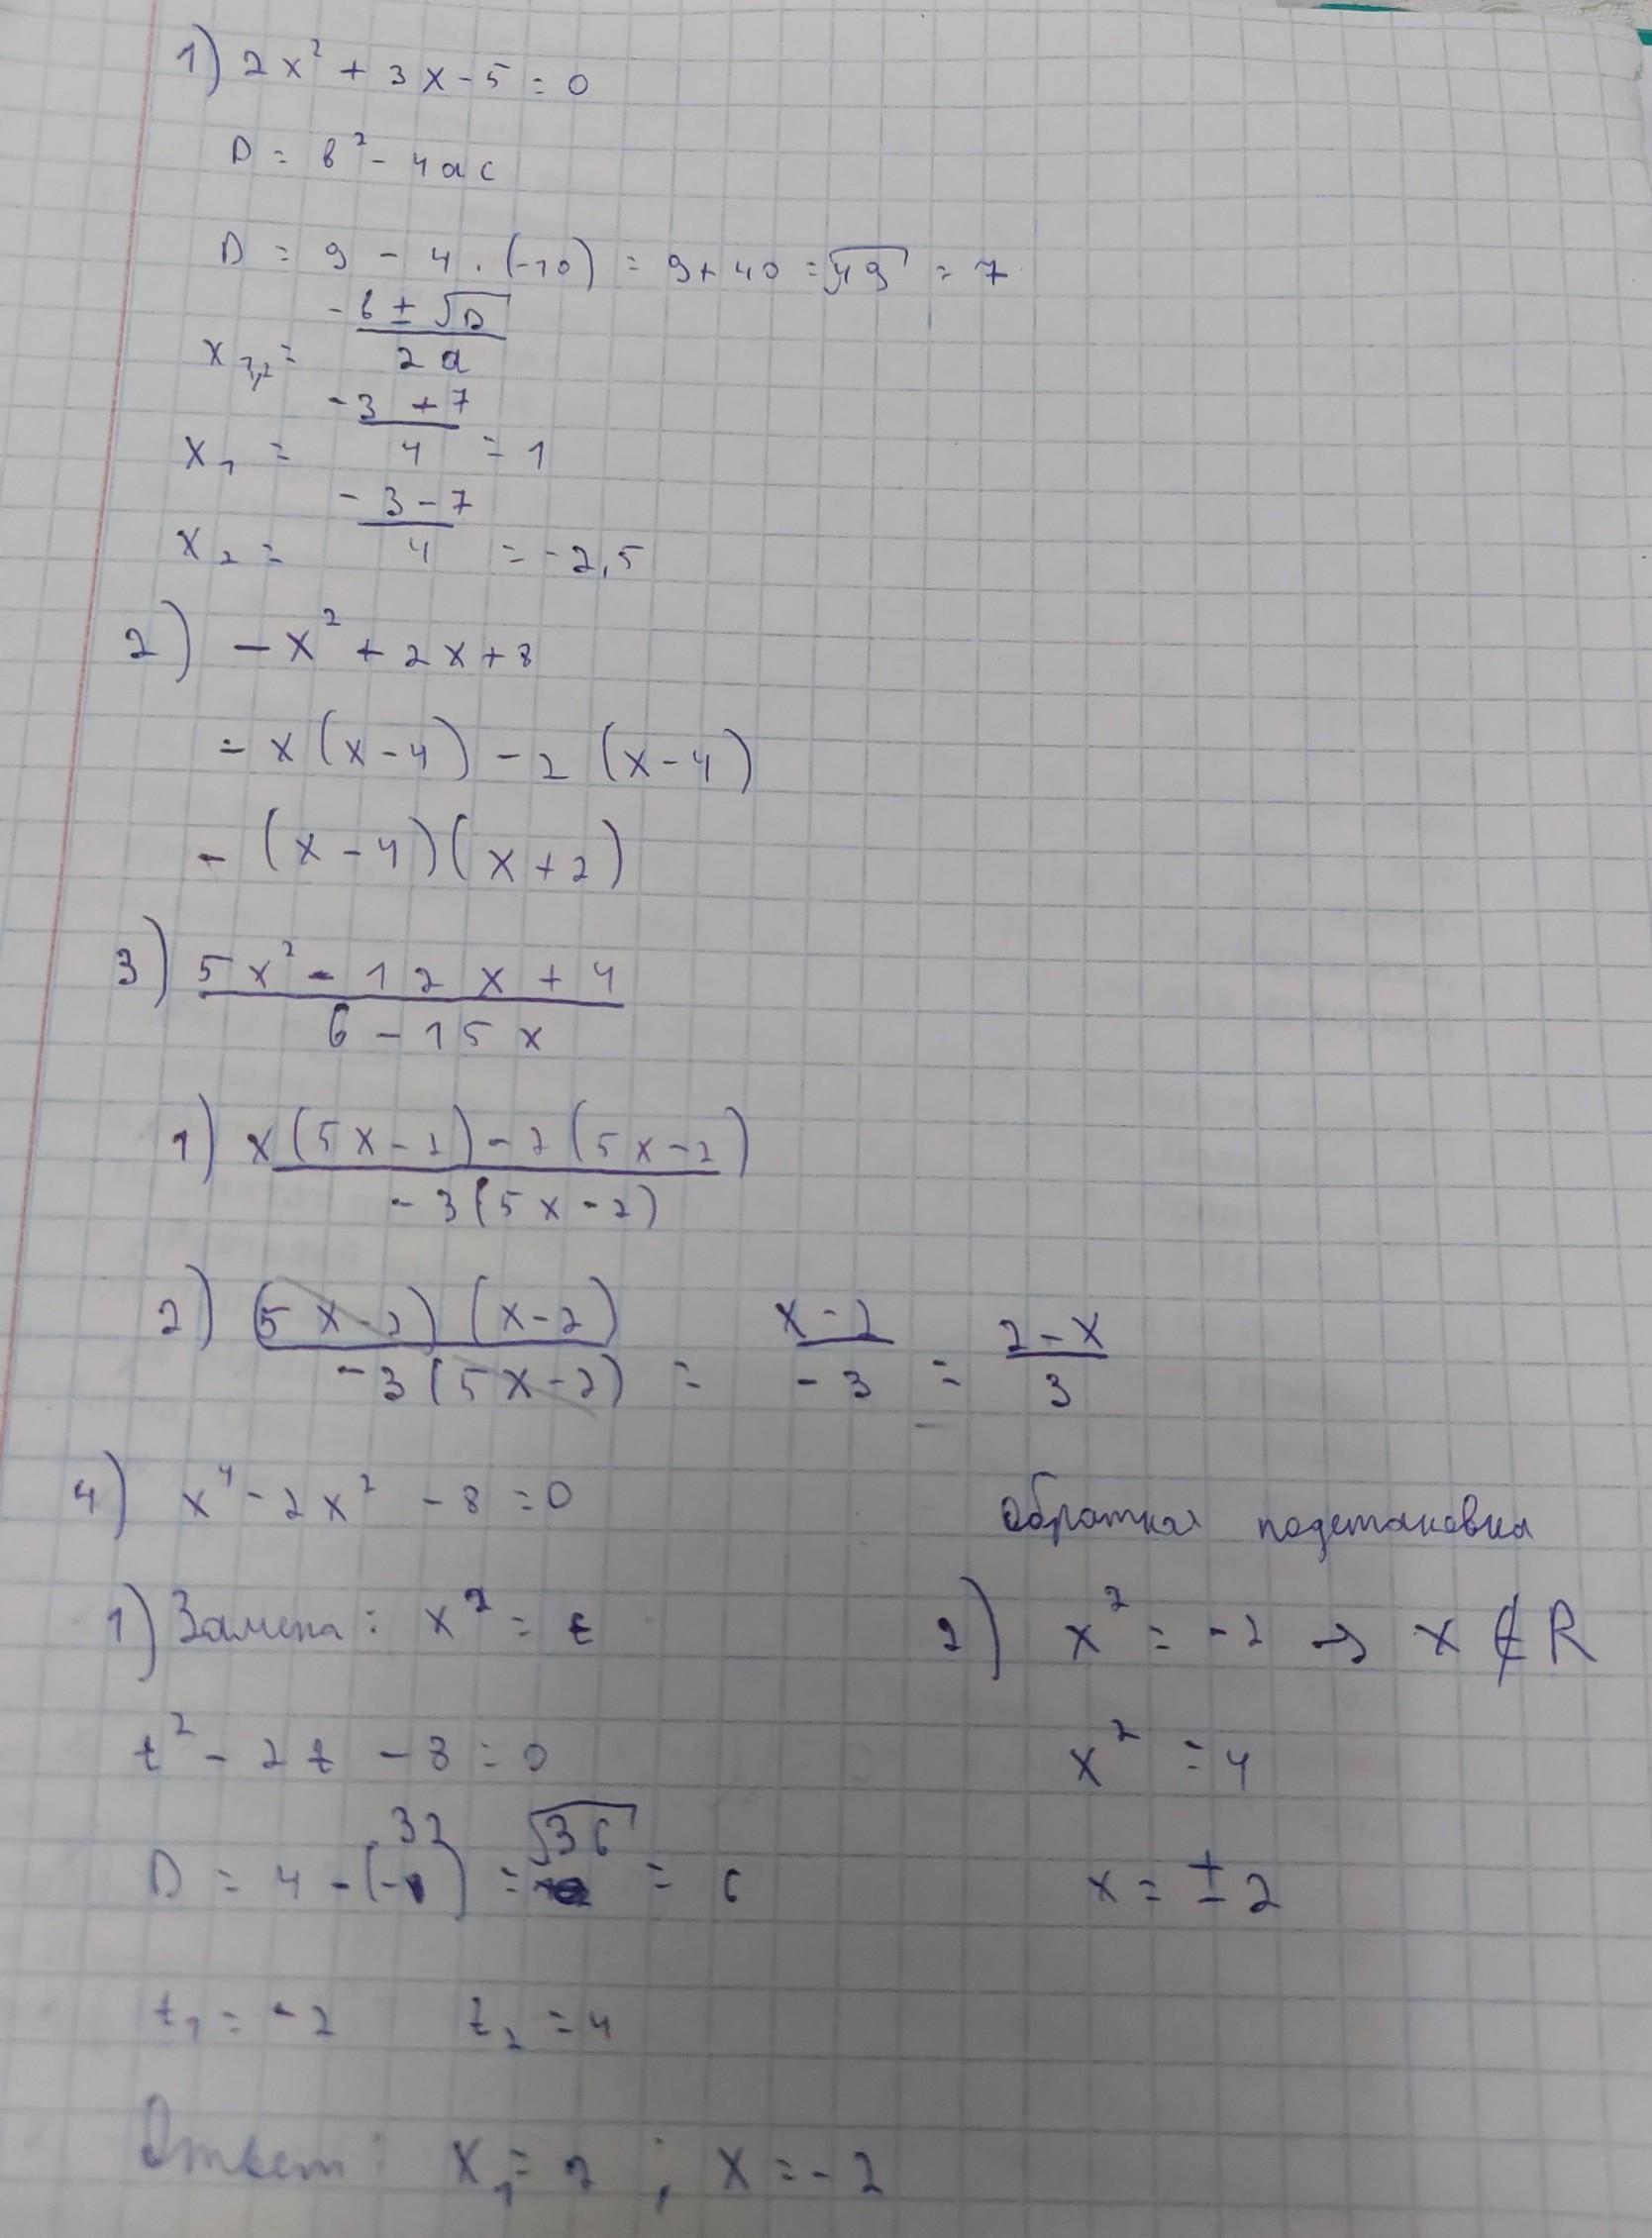 1) 2x² + 3x - 5 = 0
D = b² - 4ac
D = 9 - 4 · (-10) = 9 + 40 = √49 = 7
x₁,₂ = (-b ± √D) / 2a
x₁ = (-3 + 7) / 4 = 1
x₂ = (-3 - 7) / 4 = -2,5
2) -x² + 2x + 8
- x(x - 4) - 2(x - 4)
- (x - 4)(x + 2)
3) (5x² - 12x + 4) / (6 - 15x)
1) (x(5x - 2) - 2(5x - 2)) / (-3(5x - 2))
2) ((5x - 2)(x - 2)) / (-3(5x - 2)) = (x - 2) / -3 = (2 - x) / 3
4) x⁴ - 2x² - 8 = 0
1) Замена: x² = t
t² - 2t - 8 = 0
D = 4 - (-32) = √36 = 6
t₁ = -2 t₂ = 4
обратная подстановка
2) x² = -2 → x ∉ R
x² = 4
x = ±2
Ответ: x₁ = 2 ; x = -2